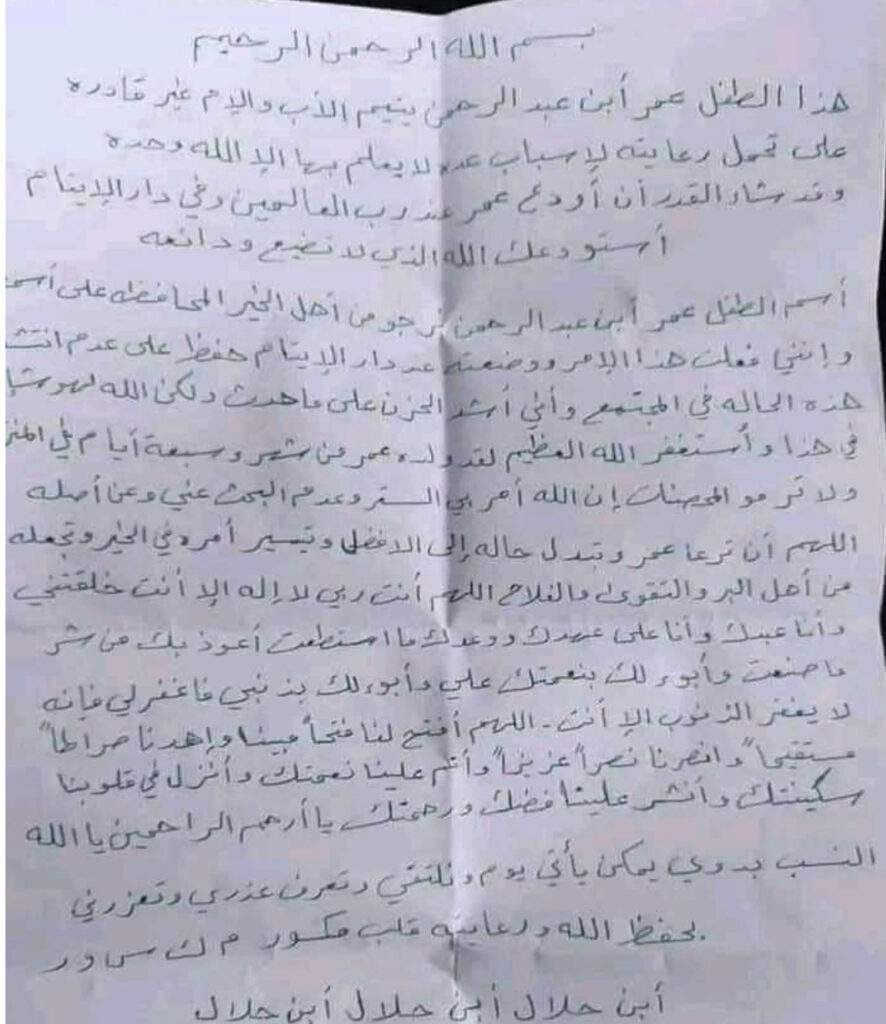 بسم الله الرحمن الرحيم
هذا الطفل عمر أبن عبد الرحمن يتيم الأب والإم غير قادره
على تحمل رعايته لإسباب عده لا يعلم بها إلا الله وحده
وقد شاء القدر أن أودع عمر عند رب العالمين وفي دار الإيتام
أستودعك الله الذي لا تضيع ودائعه
أسم الطفل عمر أبن عبد الرحمن نرجو من أهل الخير المحافظه على أسم
وإنني فعلت هذا الإمر ووضعته عند دار الإيتام حفظ على عدم انتش
هذه الحاله في المجتمع وأني أشد الحزن على ما حدث ولكن الله لهو شا
في هذا وأستغفر الله العظيم لقد ولد عمر من شهر وسبعة أيام في المنز
ولا ترمو المحصنات إن الله أمر بي الستر وعدم البحث عني وعن أصله
اللهم أن ترعا عمر وتبدل حاله إلى الافضل وتيسير أمره في الخير وتجعله
من أهل البر والتقوى والفلاح اللهم أنت ربي لا إله الإ أنت خلقتني
وأنا عبدك وأنا على عهدك ووعدك ما استطعت أعوذ بك من شر
ما صنعت وأبوء لك بنعمتك علي وأبوء لك بذنبي فاغفر لي فإنه
لا يغفر الذنوب الإ أنت - اللهم أفتح لنا فتحاً مبينا وإهدنا صراطاً
مستقيماً وانصرنا نصراً عزيزاً وأتم علينا نعمتك وأنزل في قلوبنا
سكينتك وأنشر علينا فضلك ورحمتك يا أرحم الراحمين يا الله
النسب بدوي يمكن يأتي يوم ونلتقي وتعرف عذري وتعزرني
بحفظ الله ورعايته قلب مكسور م ك س و ر
أبن حلال أبن حلال أبن حلال